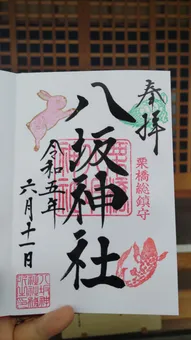 奉拝
栗橋総鎮守
八坂神社
令和五年
六月十一日